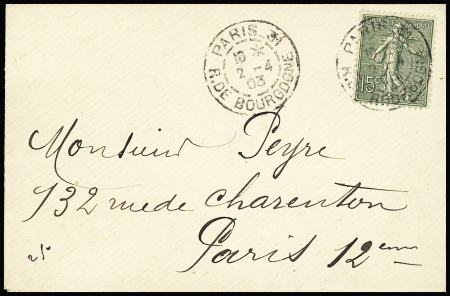 PARIS 31
16 *
2 - 4
03
R. DE BOURGOGNE
PARIS 31
15c
R. DE BOURGOGNE
Monsieur Peyre
132 rue de charenton
Paris 12eme